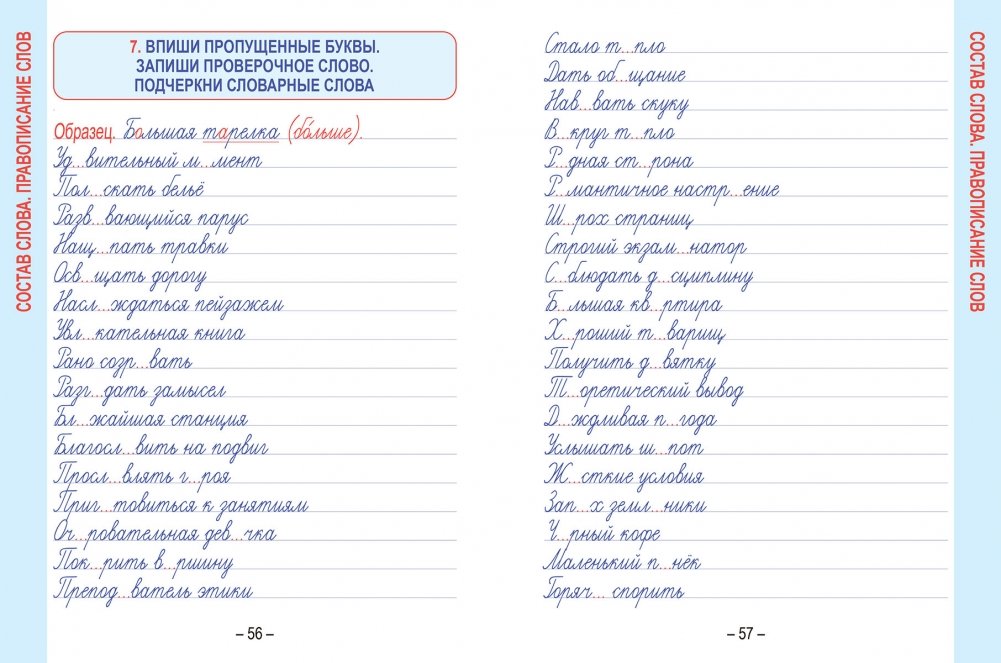 СОСТАВ СЛОВА. ПРАВОПИСАНИЕ СЛОВ
7. ВПИШИ ПРОПУЩЕННЫЕ БУКВЫ.
ЗАПИШИ ПРОВЕРОЧНОЕ СЛОВО.
ПОДЧЕРКНИ СЛОВАРНЫЕ СЛОВА
Образец. Большая тарелка (бо́льше).
Уд...вительный м...мент
Пол...скать бельё
Разв...вающийся парус
Нащ...пать травки
Осв...щать дорогу
Насл...ждаться пейзажем
Увл...кательная книга
Рано созр...вать
Разг...дать замысел
Бл...жайшая станция
Благосл...вить на подвиг
Просл...влять г...роя
Приг...товиться к занятиям
Оч...ровательная дев...чка
Пок...рить в...ршину
Препод...ватель этики
– 56 –
Стало т...пло
Дать об...щание
Нав...вать скуку
В...круг т...пло
Р...дная ст...рона
Р...мантичное настр...ение
Ш...рох страниц
Строгий экзам...натор
С...блюдать д...сциплину
Б...льшая кв...ртира
Х...роший т...варищ
Получить д...вятку
Т...оретический вывод
Д...ждливая п...года
Услышать ш...пот
Ж...сткие условия
Зап...х земл...ники
Ч...рный кофе
Маленький п...нёк
Горяч... спорить
– 57 –
СОСТАВ СЛОВА. ПРАВОПИСАНИЕ СЛОВ